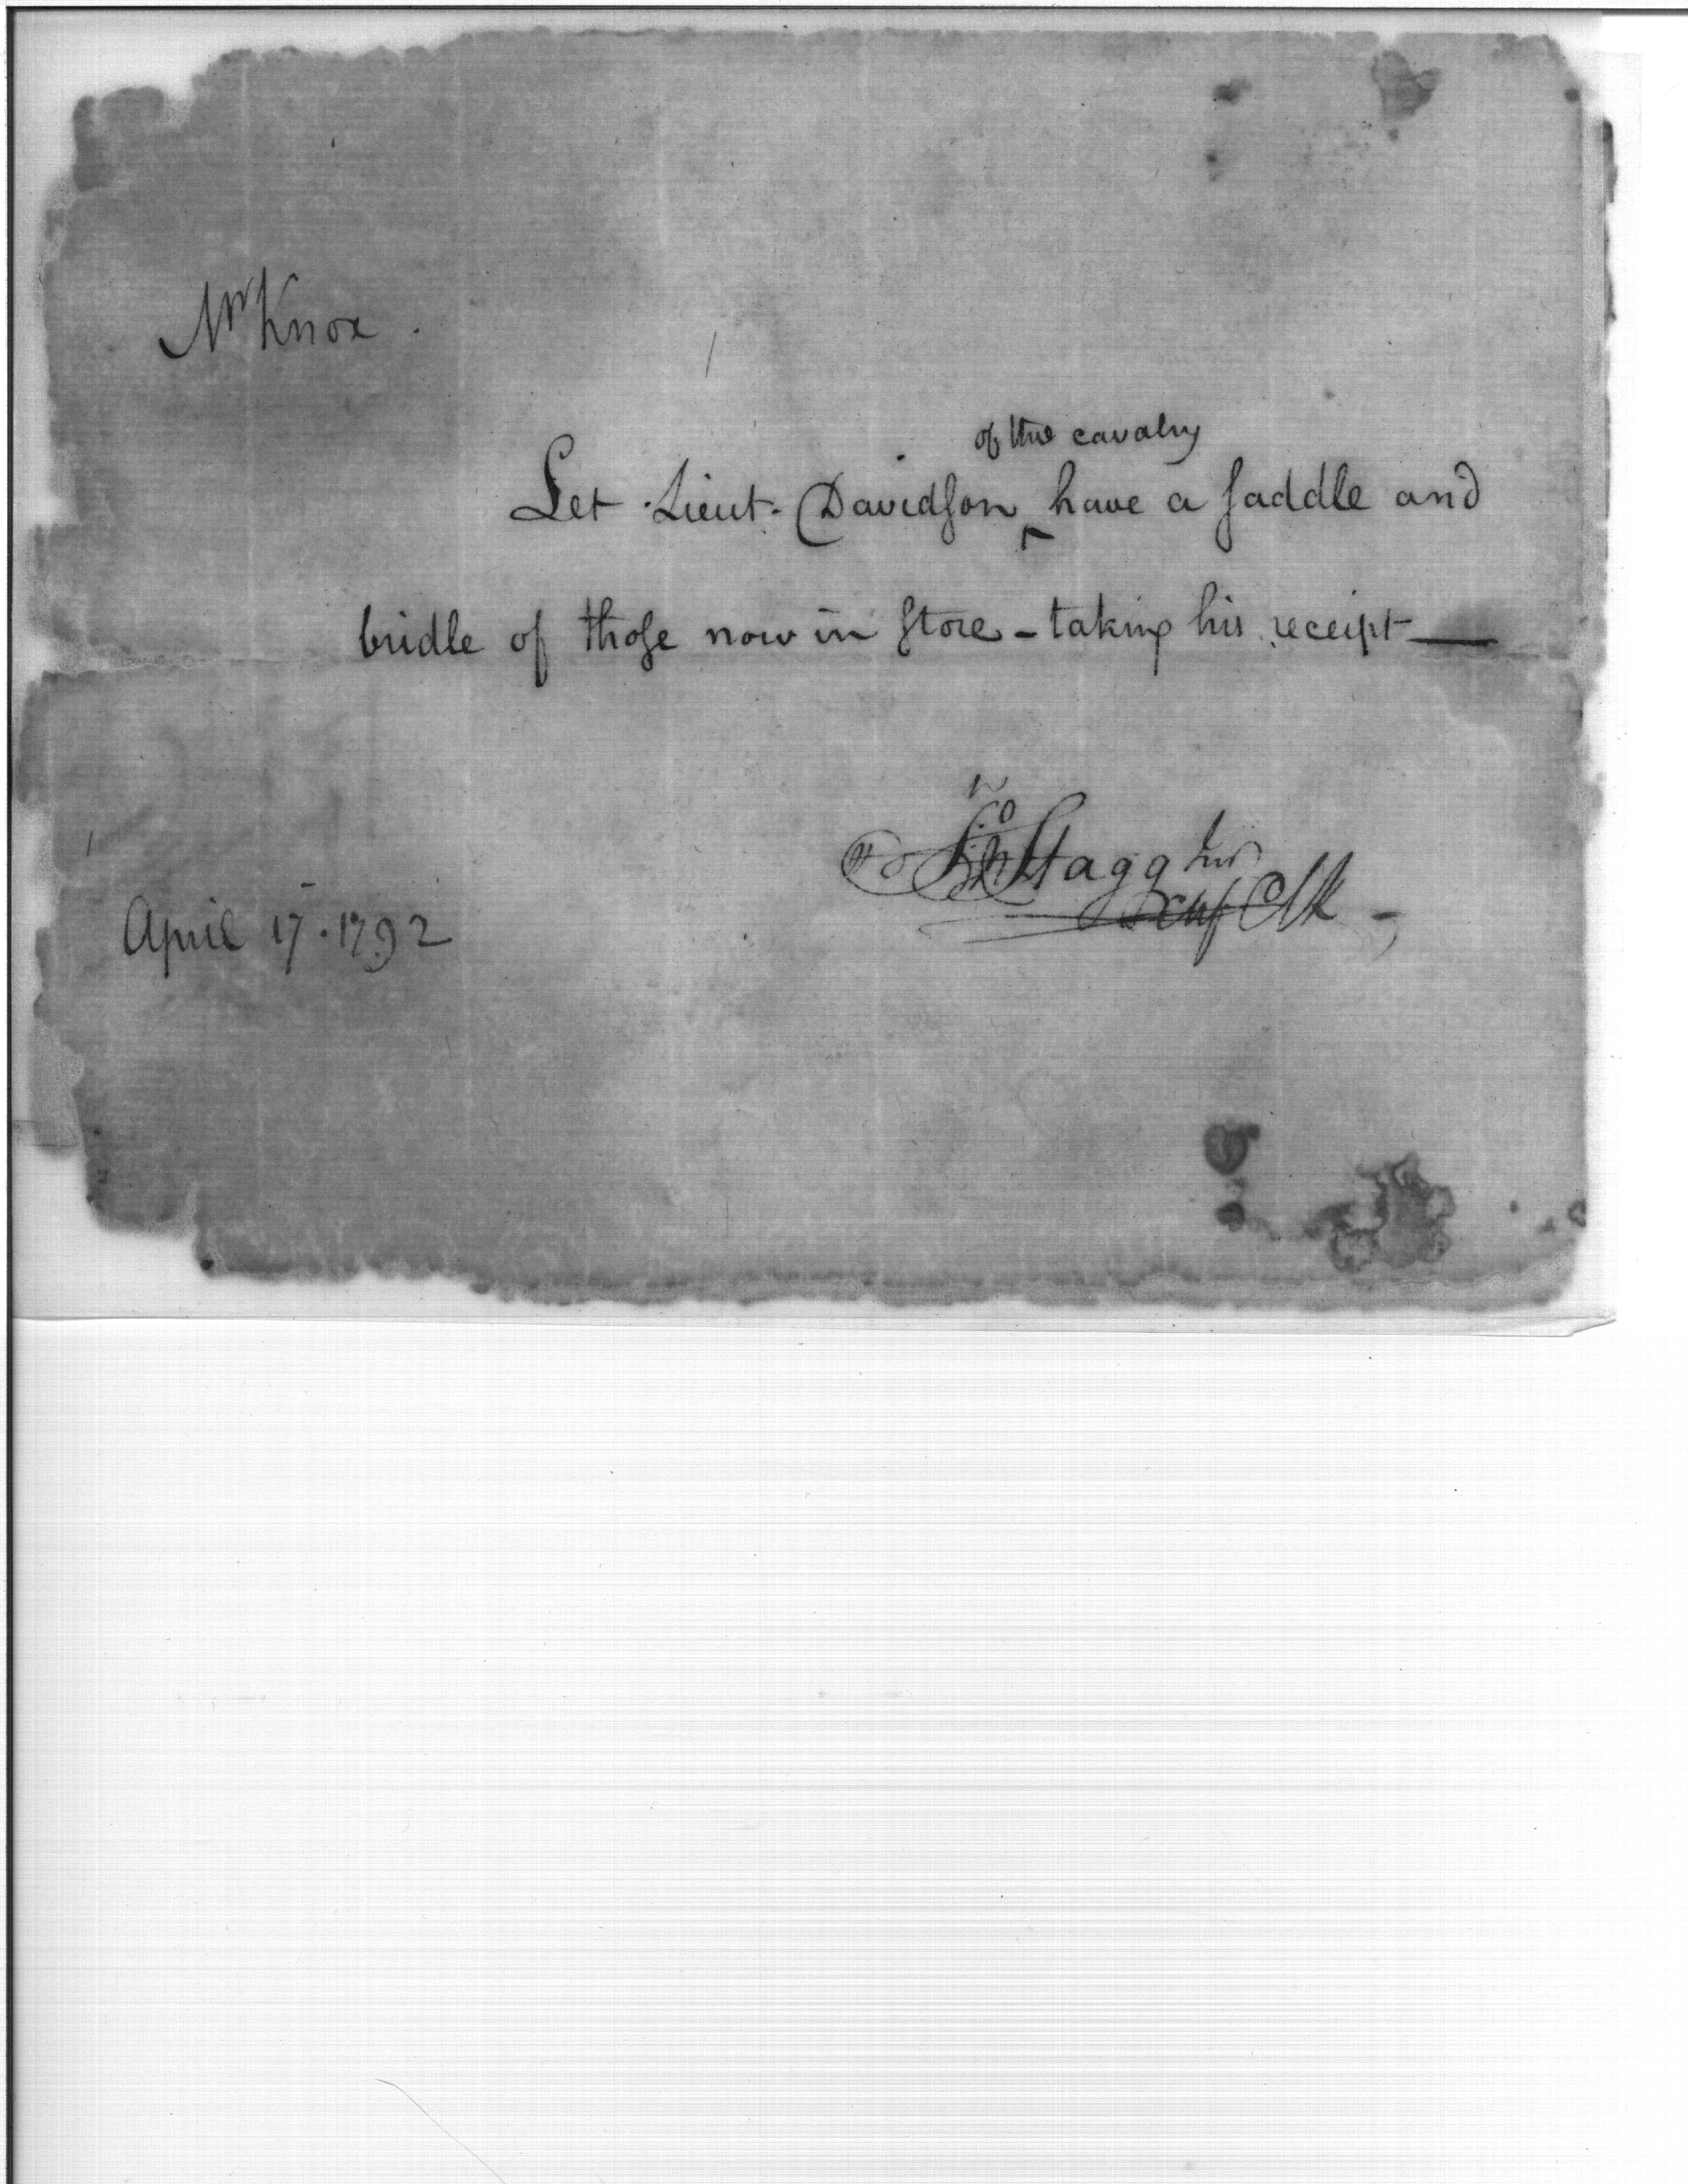 Mr Knox.
of the cavalry
Let Lieut. Davidson ^ have a saddle and
bridle of those now in Store - taking his receipt —
Jno Stagg Junr
Chf Clk -
April 17. 1792